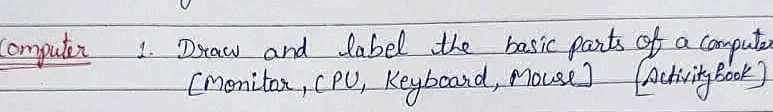 Computer 1. Draw and label the basic parts of a computer
[Monitor, CPU, Keyboard, Mouse] [Activity Book]